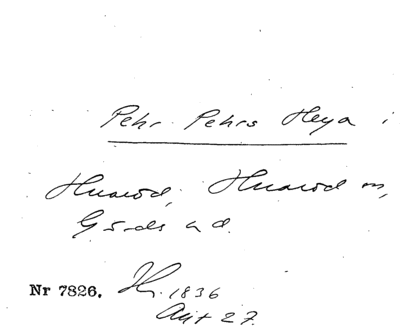 Pehr Pehrs Heya i
Huaröd, Huaröd sn,
Gärds hd.
Nr 7826. Hr. 1836
Akt 27.